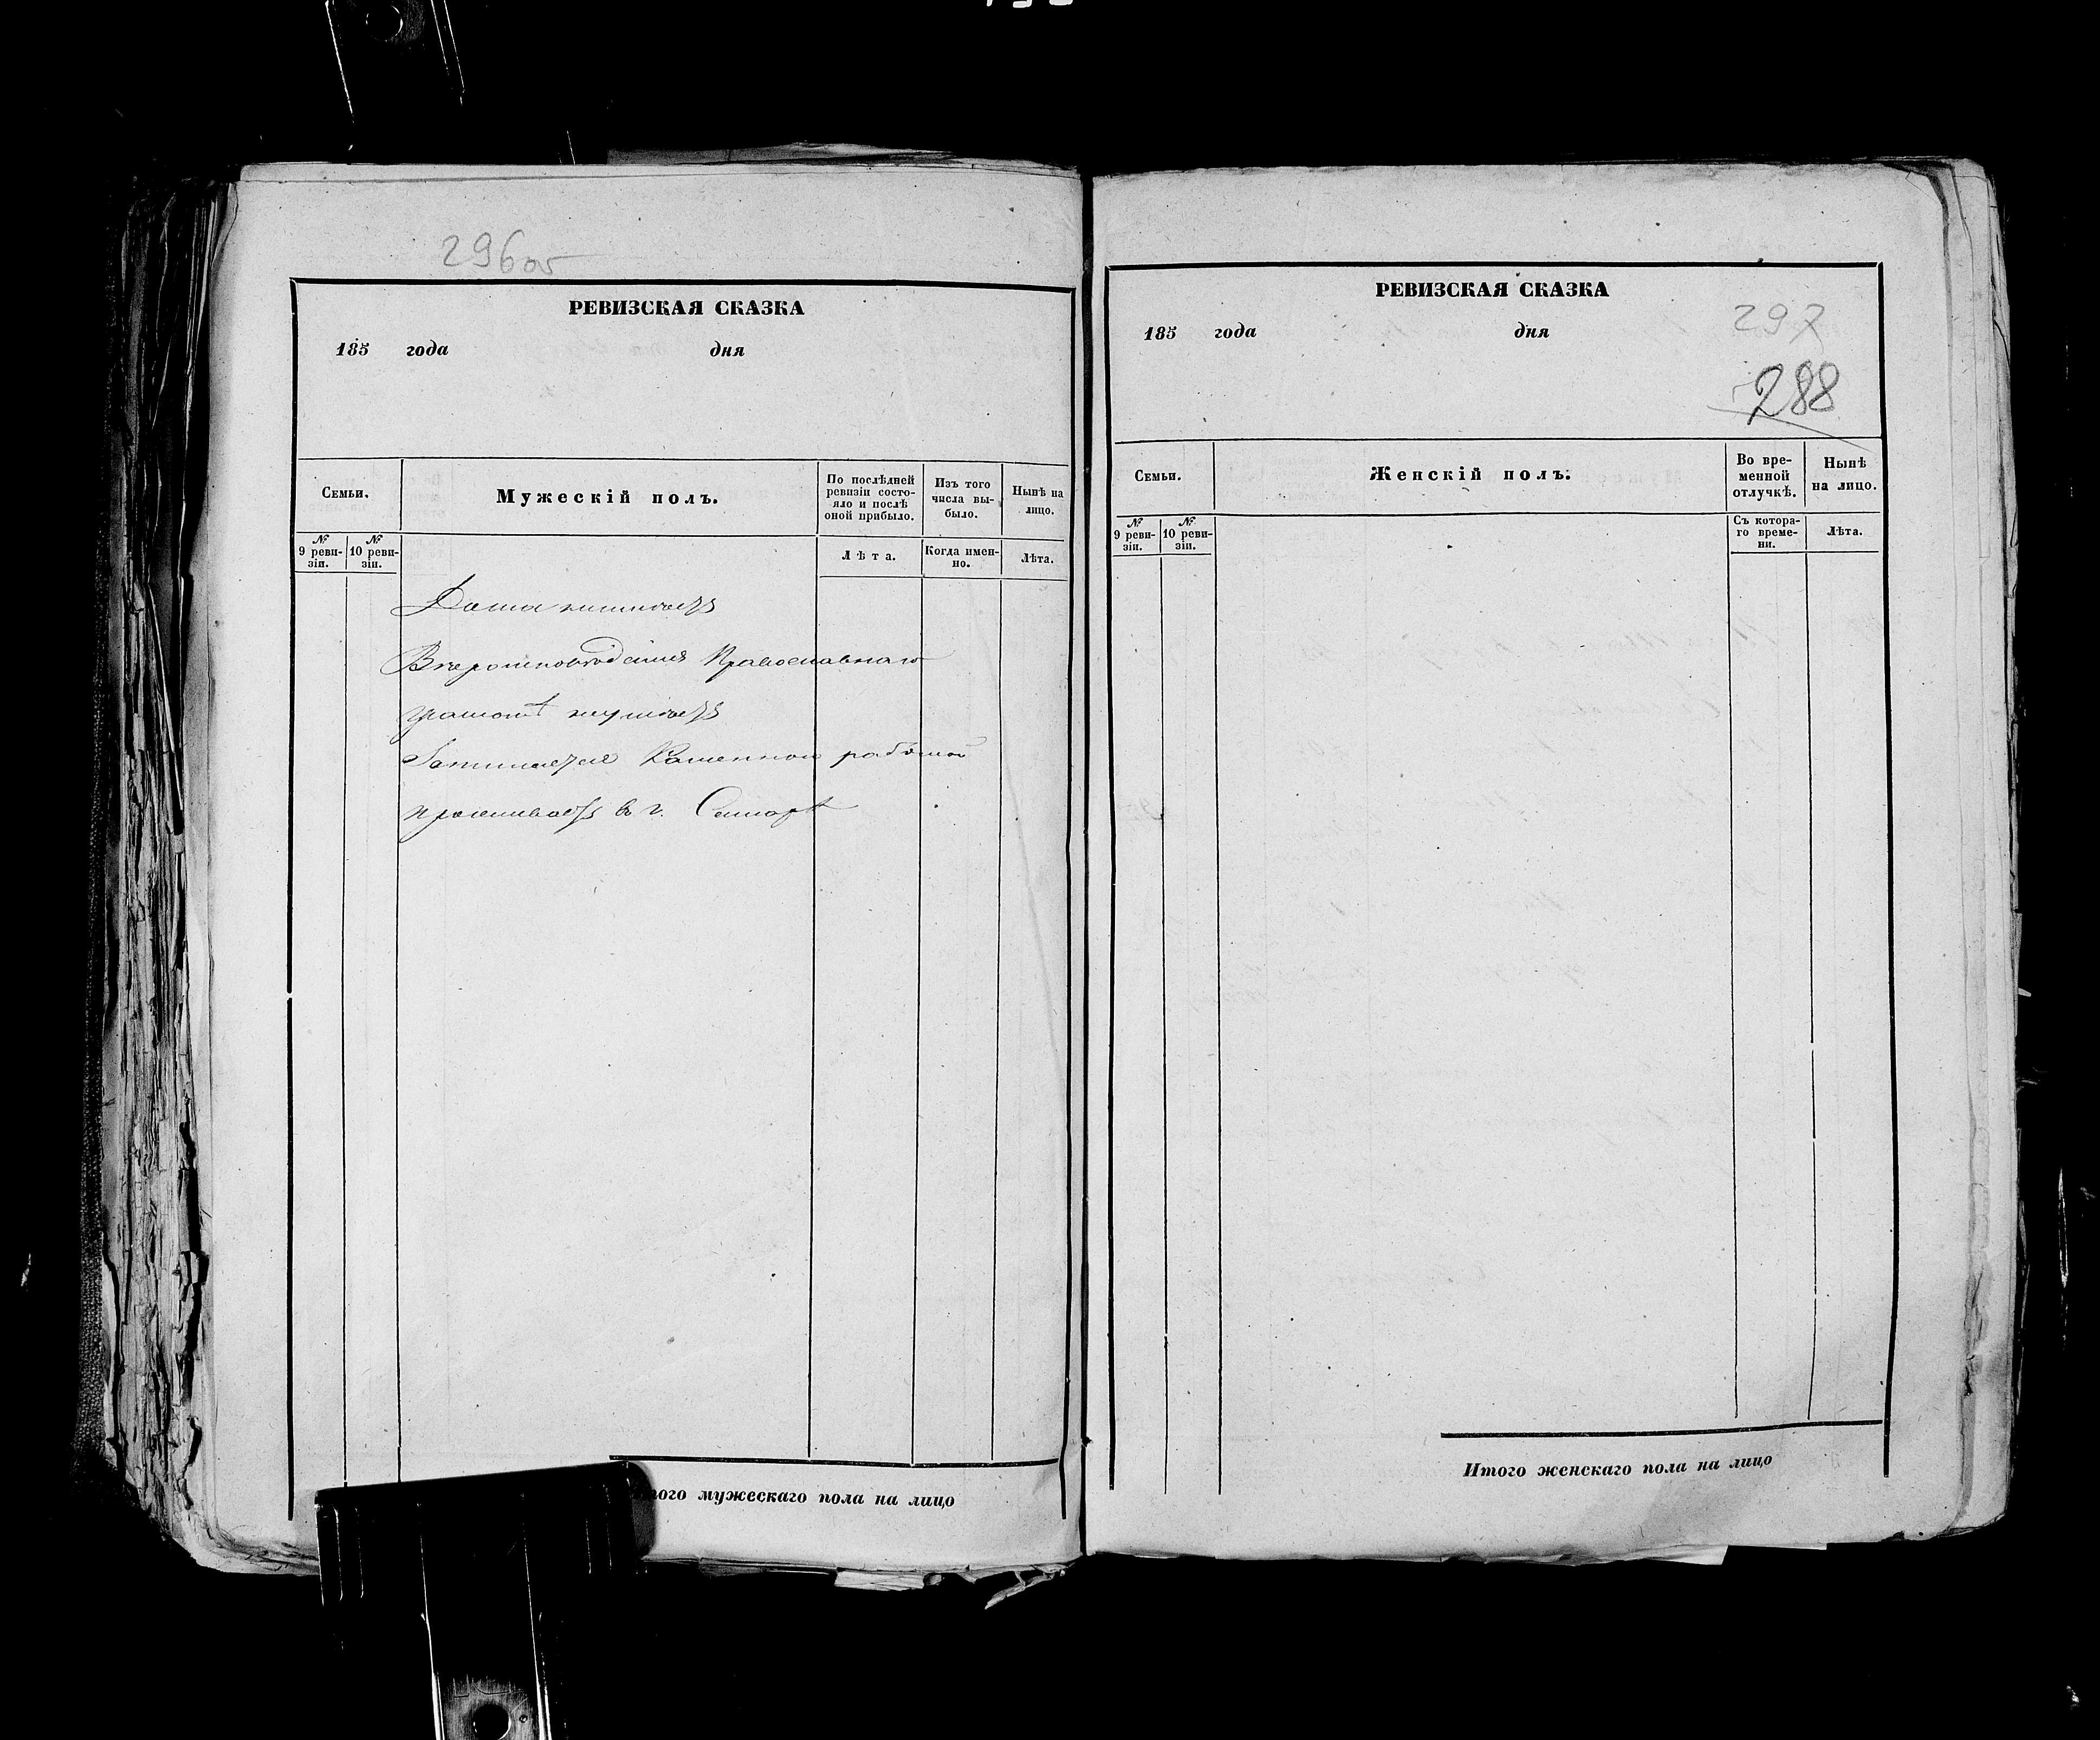 296об
РЕВИЗСКАЯ СКАЗКА
185 года дня
Семьи.
Мужескій полъ.
По послѣдней ревизіи состояло и послѣ оной прибыло.
Изъ того числа выбыло.
Нынѣ на лицо.
№ 9 ревизіи.
№ 10 ревизіи.
Лѣта.
Когда именно.
Лѣта.
Дома неимѣетъ
Вѣроисповѣданія Православнаго
грамотѣ неумѣетъ
Занимается Каменной работой
проживаетъ в г. Самарѣ
того мужескаго пола на лицо
РЕВИЗСКАЯ СКАЗКА
297
185 года дня
288
Семьи.
Женскій полъ.
Во временной отлучкѣ.
Нынѣ на лицо.
№ 9 ревизіи.
№ 10 ревизіи.
Съ котораго времени.
Лѣта.
Итого женскаго пола на лицо